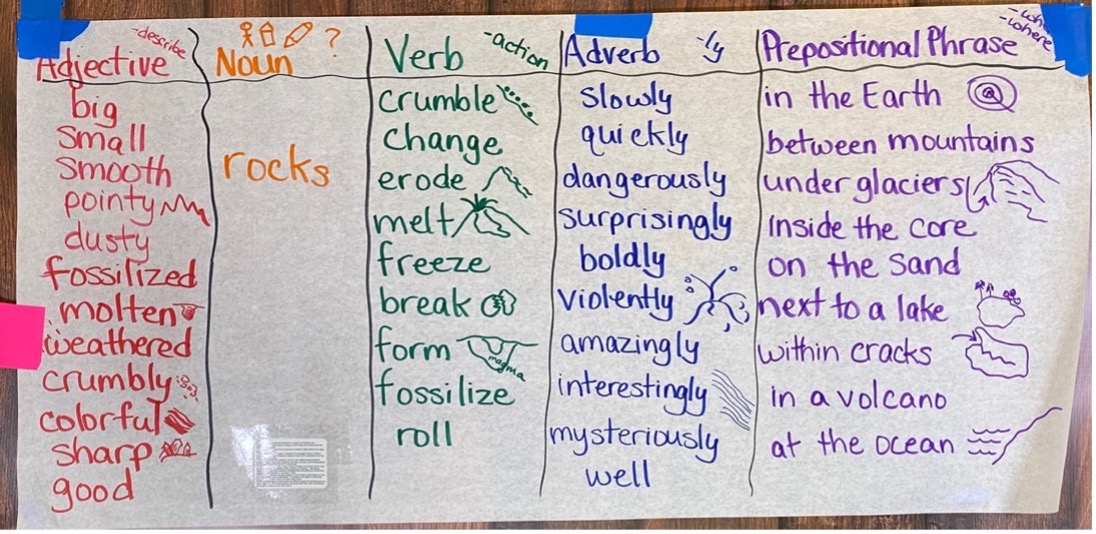 Adjective
-describe
big
small
smooth
pointy
dusty
fossilized
molten
weathered
crumbly
colorful
sharp
good
Noun
?
rocks
Verb
-action
crumble
change
erode
melt
freeze
break
form
magma
fossilize
roll
Adverb
-ly
slowly
quickly
dangerously
surprisingly
boldly
violently
amazingly
interestingly
mysteriously
well
Prepositional Phrase
-where
in the Earth
between mountains
under glaciers
Inside the core
on the sand
next to a lake
within cracks
in a volcano
at the ocean